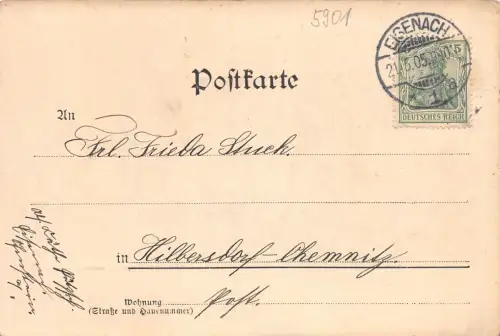 5901
EISENACH
21.5.05.
1 a
5
DEUTSCHES REICH
Postkarte
An
Frl. Frieda Stuck.
in Hilbersdorf-Chemnitz.
Wohnung
(Straße und Hausnummer)
Post.